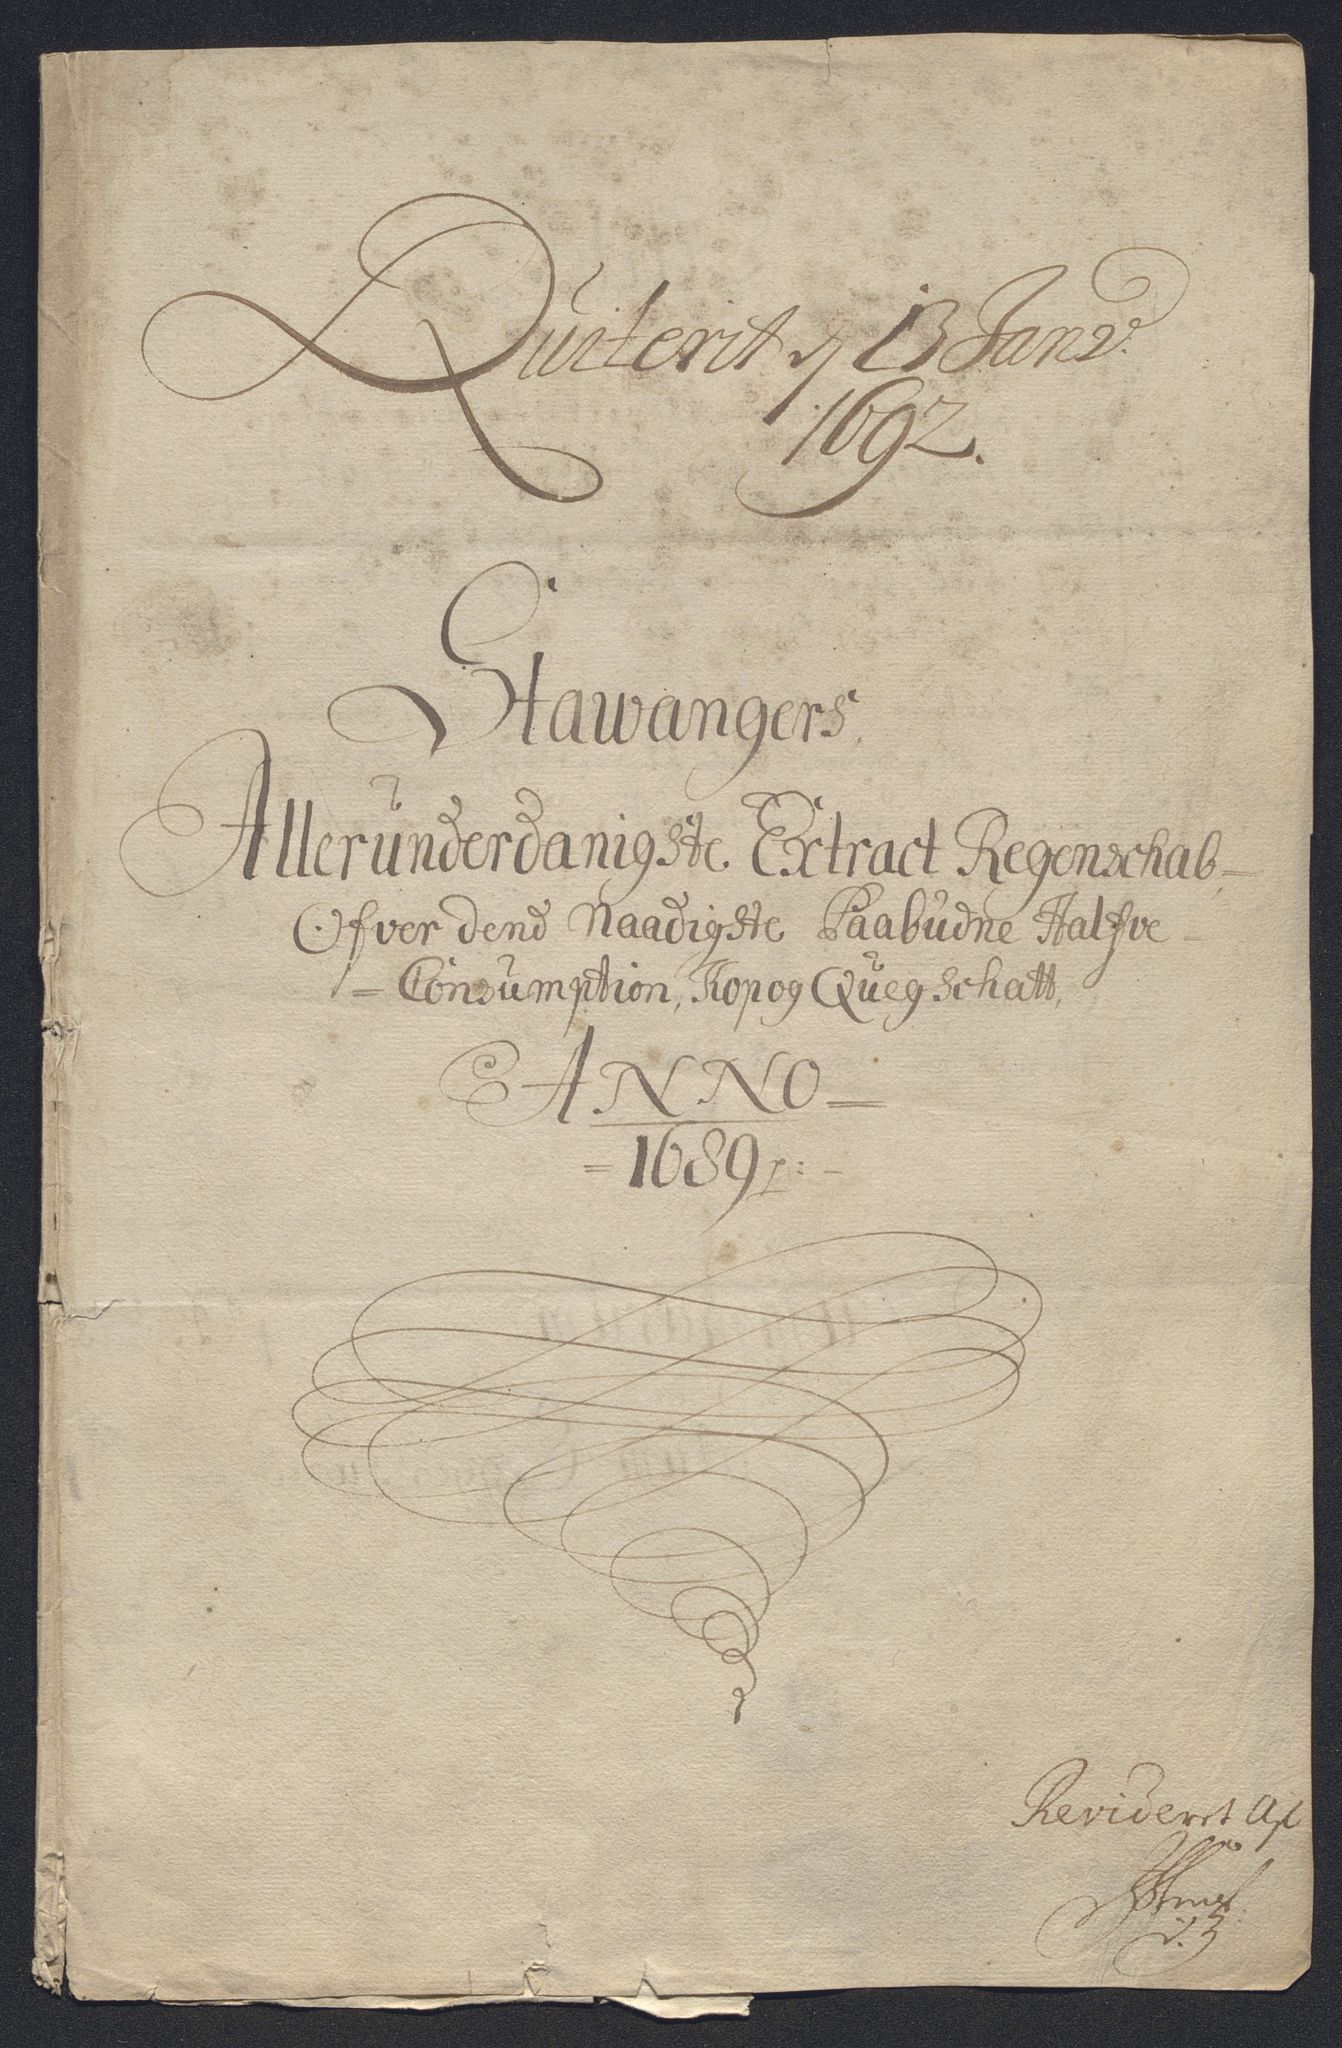 Quiterit d 13 Janv.
1692.
Stawangers
Alleründerdanigste Extract Regenschab,
Ofver dend Naadigste Paabudne Halfve
Consumption, Kop og Quegschatt,
ANNO
1689
Revideret Af